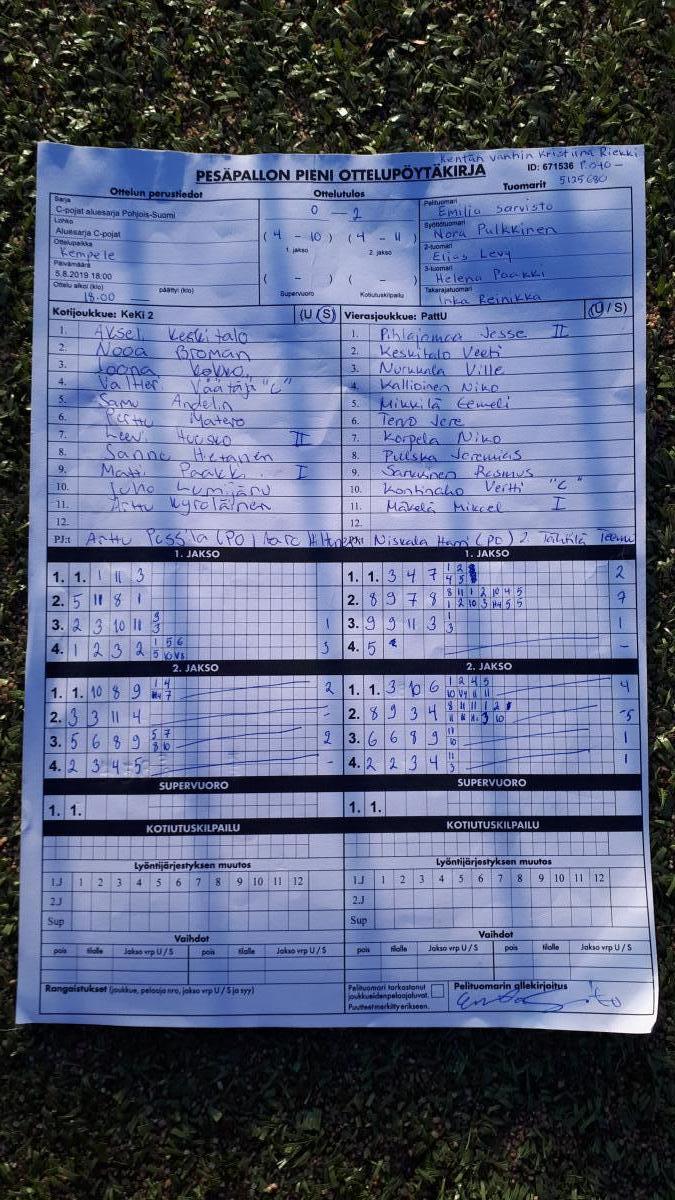 Kentän vanhin Kristiina Riekki
PESÄPALLON PIENI OTTELUPÖYTÄKIRJA
ID: 671536 P. 040-
5125680
Ottelun perustiedot
Ottelutulos
Tuomarit
Sarja
C-pojat aluesarja Pohjois-Suomi
Lohko
Aluesarja C-pojat
Ottelupaikka
Kempele
Päivämäärä
5.8.2019 18:00
Ottelu alkoi (klo) päättyi (klo)
18:00
0 - 2
(4 - 10) (4 - 11)
1. jakso 2. jakso
( - ) ( - )
Supervuoro Kotiutuskilpailu
Pelituomari
Emilia Sarvisto
Syöttötuomari
Nora Pulkkinen
2-tuomari
Elias Levy
3-tuomari
Helena Paakki
Takarajatuomari
Inka Reinikka
Kotijoukkue: KeKi 2 (U / S)
1. Akseli Keskitalo
2. Nooa Broman
3. Joona Kokko
4. Valtter Väätäjä "C"
5. Samu Andelin
6. Perttu Matero
7. Leevi Huusko II
8. Sanna Hietanen
9. Matti Paakki I
10. Juho Lumijärvi
11. Arttu Kyröläinen
12.
Vierasjoukkue: PattU (U / S)
1. Pihlajamaa Jesse II
2. Keskitalo Veeti
3. Nurkkala Ville
4. Kallioinen Niko
5. Mikkilä Eemeli
6. Tervo Jere
7. Korpela Niko
8. Pulska Jeremias
9. Sarkkinen Rasmus
10. Kontinaho Vertti "C"
11. Mäkelä Mikael I
12.
PJ:t Arttu Pessila (PO)
Niskala Harri (PO) 2. Tähtilä Teemu
1. JAKSO
1. 1. 1 11 3
2. 5 11 8 1
3. 2 3 10 11 1
4. 1 2 3 2 3
2. JAKSO
1. 1. 10 8 9 2
2. 3 3 11 4 -
3. 5 6 8 9 5 7 8 10 2
4. 2 3 4 5 -
SUPERVUORO
1. 1.
KOTIUTUSKILPAILU
Lyöntijärjestyksen muutos
1.J 1 2 3 4 5 6 7 8 9 10 11 12
2.J
Sup
Vaihdot
pois tilalle Jakso vrp U / S pois tilalle Jakso vrp U / S
Rangaistukset (joukkue, pelaaja nro, jakso vrp U / S ja syy)
1. JAKSO
1. 1. 3 4 7 2
2. 8 9 7 8 7
3. 9 9 11 3 1 3 1
4. 5 -
2. JAKSO
1. 1. 3 10 6 4
2. 8 9 3 4 5
3. 6 6 8 9 11 10 1
4. 2 2 3 4 11 3 1
SUPERVUORO
1. 1.
KOTIUTUSKILPAILU
Lyöntijärjestyksen muutos
1.J 1 2 3 4 5 6 7 8 9 10 11 12
2.J
Sup
Vaihdot
pois tilalle Jakso vrp U / S pois tilalle Jakso vrp U / S
Pelituomari tarkastanut
joukkueiden pelaajaluvat.
Puutteet merkitty erikseen.
Pelituomarin allekirjoitus